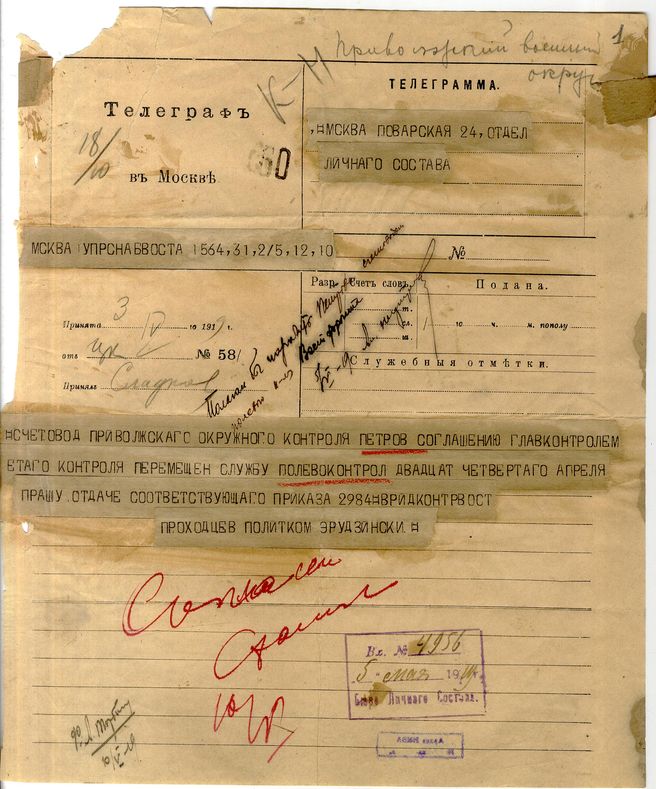 1
Приволжский военный
округ
К-Н
Телеграфъ
въ Москвѣ.
18/10
ТЕЛЕГРАММА.
,¤МОСКВА ПОВАРСКАЯ 24,ОТДЕЛ
ЛИЧНАГО СОСТАВА
МСКВА УПРСНАБВОСТА 1564,31,2/5,12,10
№
Разр. Счетъ словъ.
Подана.
го ч. м. пополу
Служебныя отмѣтки.
Принята 3 V го 1919 г.
отъ № 581
Принялъ
Полагал бы
¤СЧЕТОВОД ПРИВОЛЖСКАГО ОКРУЖНОГО КОНТРОЛЯ ПЕТРОВ СОГЛАШЕНИЮ ГЛАВКОНТРОЛЕМ
ЕТАГО КОНТРОЛЯ ПЕРЕМЕЩЕН СЛУЖБУ ПОЛЕВОКОНТРОЛ ДВАДЦАТ ЧЕТВЕРТАГО АПРЕЛЯ
ПРАШУ ОТДАЧЕ СООТВЕТСТВУЮЩАГО ПРИКАЗА 2984¤ВРИДКОНТРВОСТ
ПРОХОДЦЕВ ПОЛИТКОМ ЭРУДЗИНСКИ.¤
Согласен
Вх. № 4956
5 мая 1919 г.
Бюро Личнаго Состава.